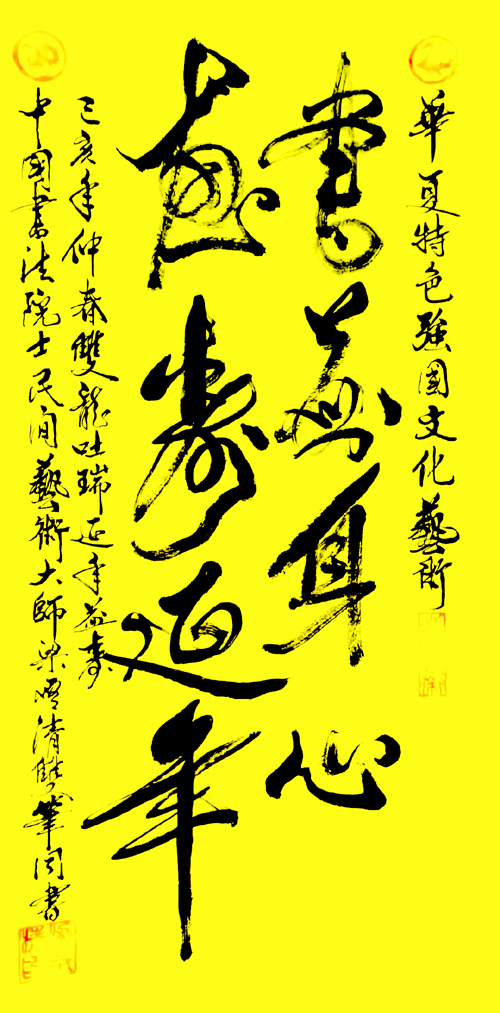 華夏特色強國文化藝術
書益身心
壽延年
己亥年仲春雙龍吐瑞延年益壽
中國書法院士民间藝術大師梁悟清雙筆同書